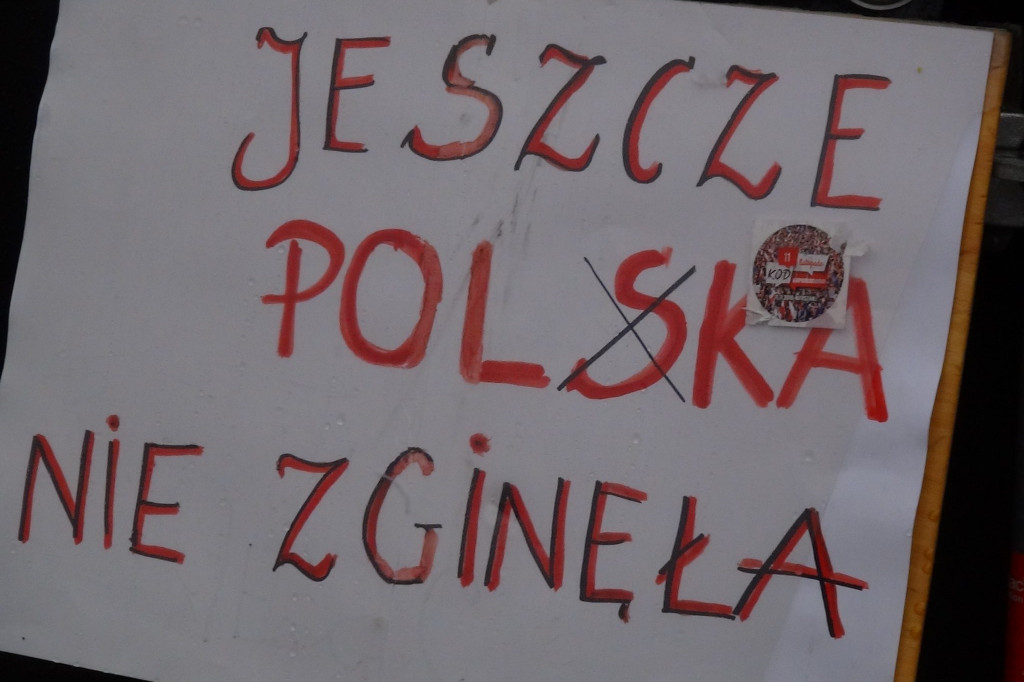 JESZCZE
POLSKA
11
KOD
NIE ZGINĘŁA